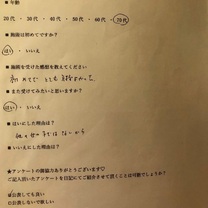 ■ 年齢
20代 ・ 30代 ・ 40代 ・ 50代 ・ 60代 ・ 70代
■ 施術は初めてですか？
はい ・ いいえ
■ 施術を受けた感想を教えてください
初めてで とても
■ また受けてみたいと思いますか？
はい ・ いいえ
■ はいにした理由は？
■ いいえにした理由は？
★アンケートの御協力ありがとうございます♡
ご記入頂いたアンケートを日記にてご紹介させて頂くことは可能でしょうか？
公表しても良い
□公表しないで欲しい